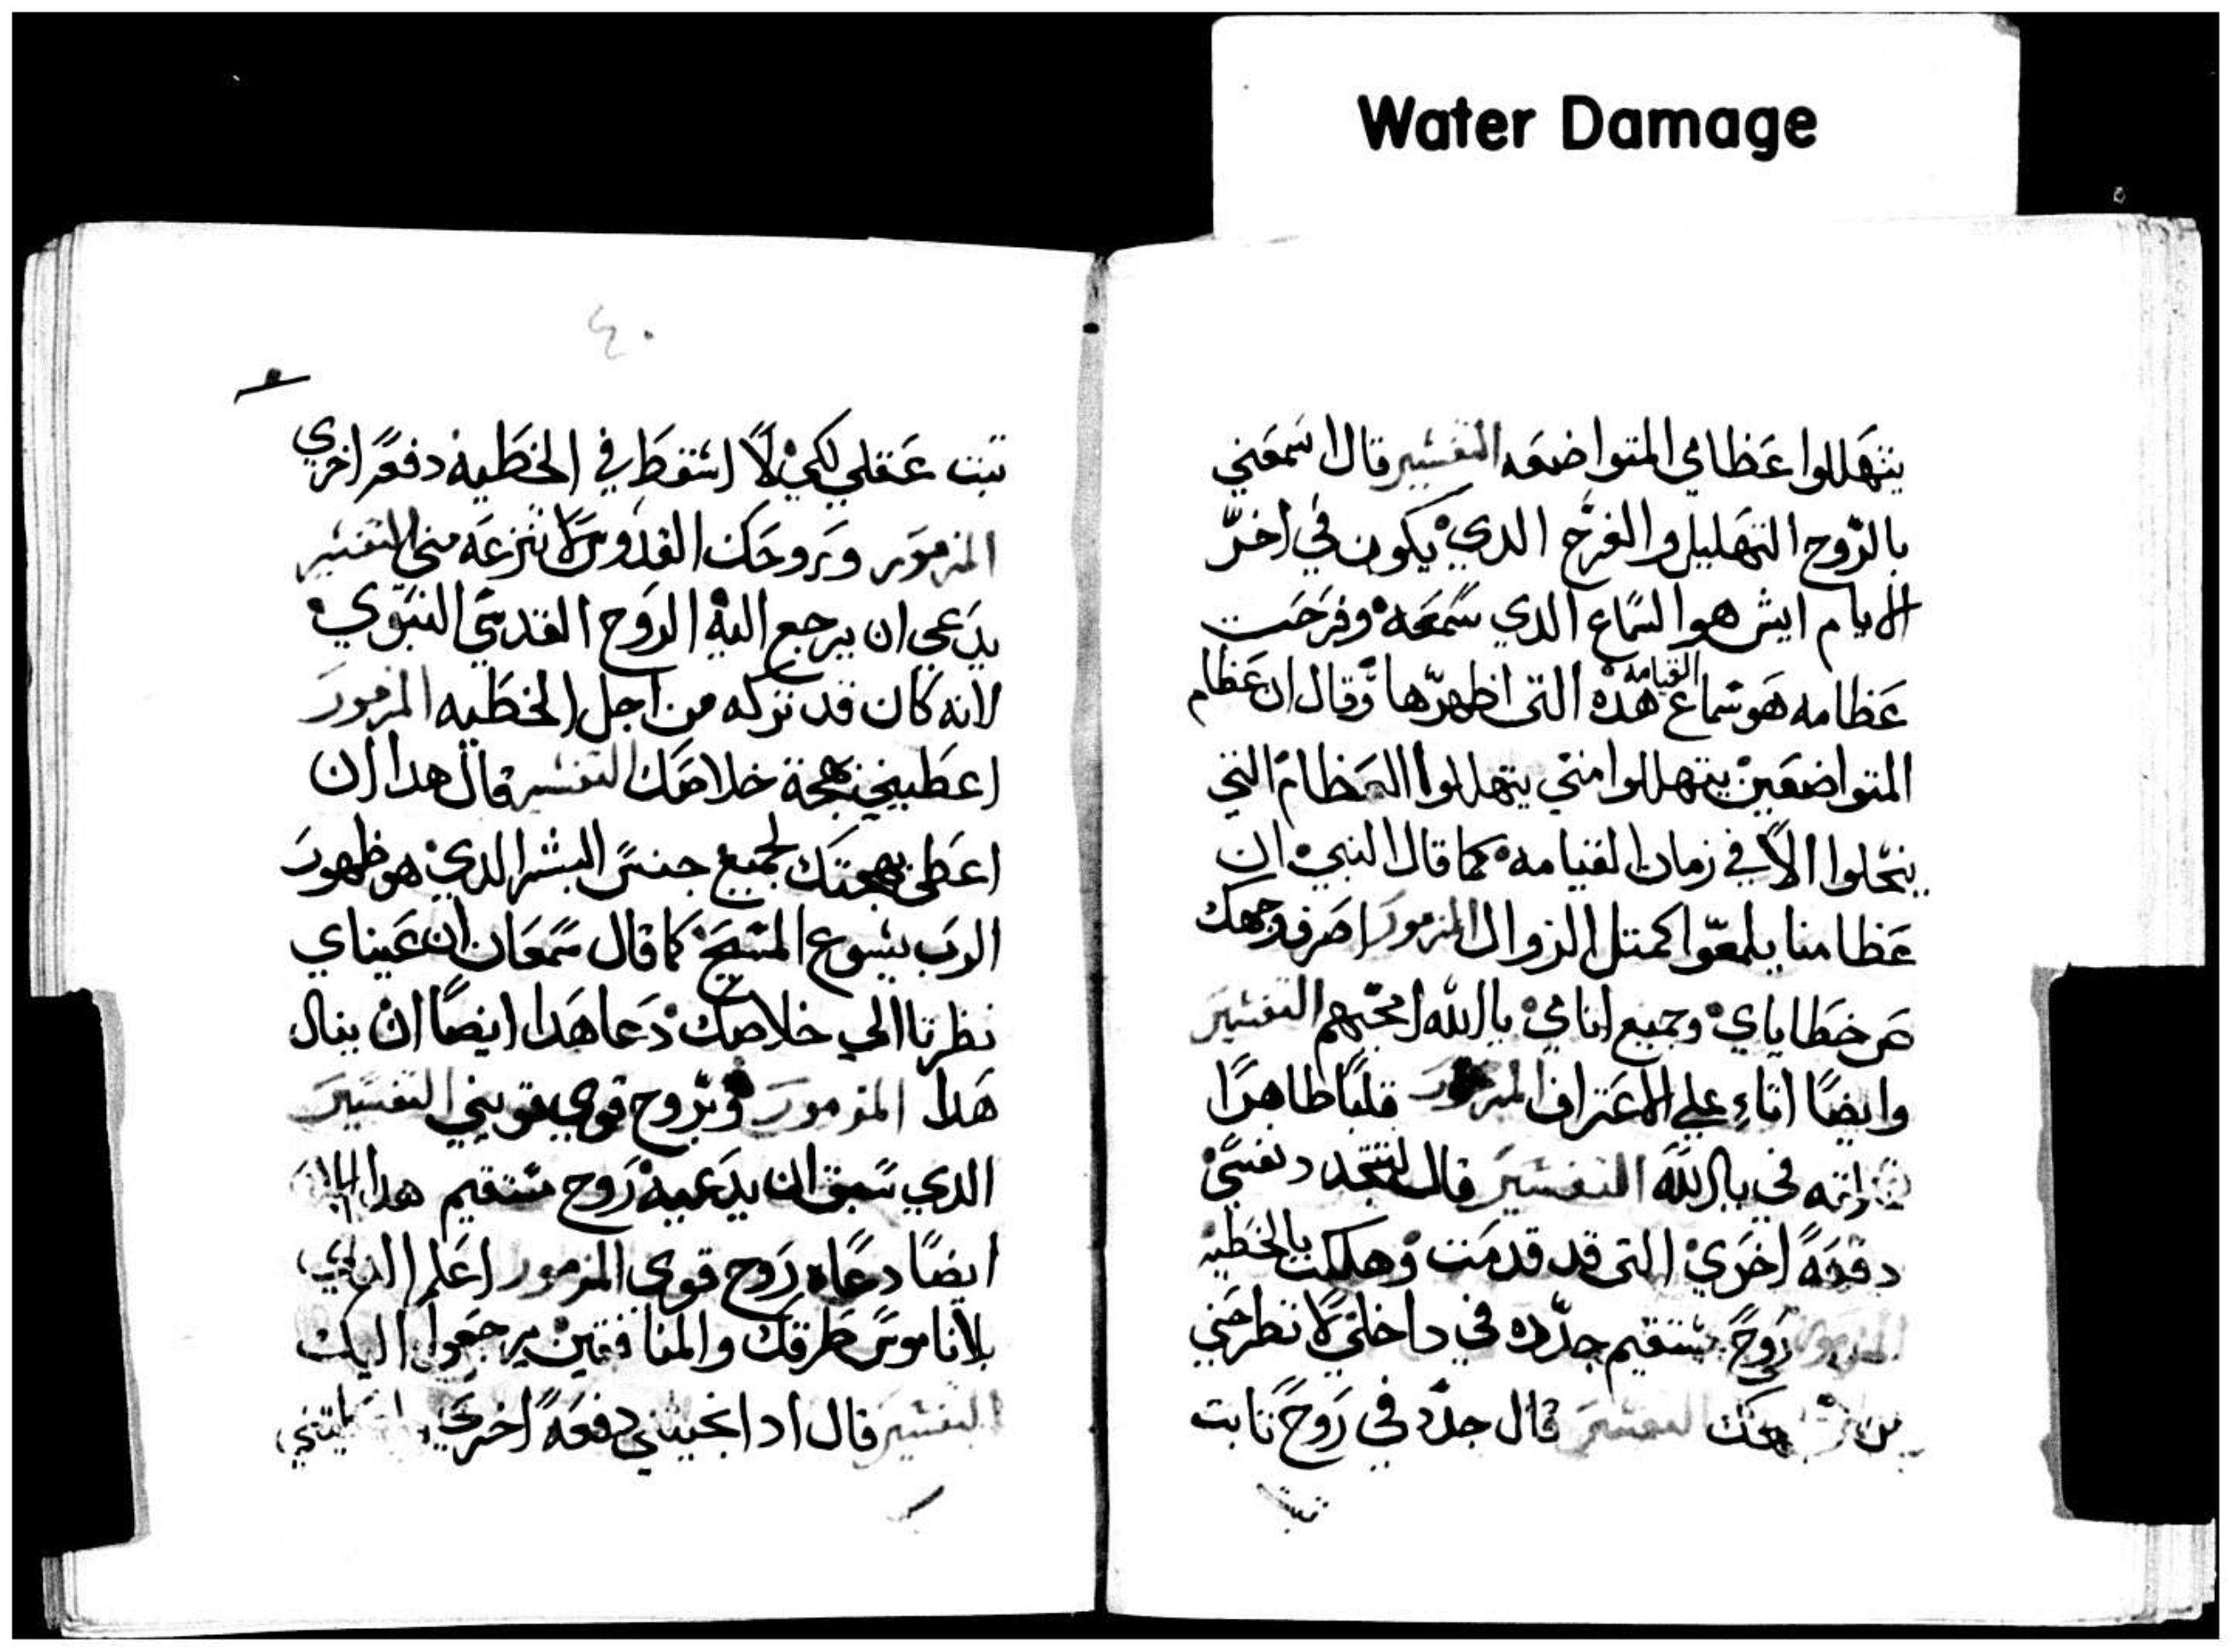 Water Damage
يتهللوا عظامي المتواضعه التفسير قال اسمعني
بالروح التهليل والفرح الدي يكون في اخر
الايام ايش هوا السماع الدي سمعه وفرحت
عظامه هو سماع القيامه هده التى اظهرها وقال ان عظام
المتواضعين يتهللوا متي يتهللوا العظام التي
ينحلوا الا في زمان القيامه كما قال النبي ان
عظامنا يلمعوا كمتل الزوال المزمور اصرف وجهك
عن خطاياي وجميع اتامي يا الله امحيهم التفسير
وايضا اتاء علي الاعتراف المزمور قلبا طاهرا
في يا الله التفسير قال لتتجدد نفسي
دفعه اخري التى قد قدمت وهلكت بالخطيه
المزمور روح مستقيم جدده في داخلي لا تطرحني
من التفسير قال جدد في روح تابت
تبت
٤٠
تبت عقلي لكي لا اسقط في الخطيه دفعه اخري
المزمور وروحك القدوس لا تنزعه مني التفسير
يدعي ان يرجع اليه الروح القدسي النبوي
لانه كان قد تركه من اجل الخطيه المزمور
اعطيني بهجة خلاصك التفسير قال هدا ان
اعطي بهجتك لجميع جنس البشر الدي هو ظهور
الرب يسوع المسيح كما قال سمعان ان عيناي
نظرتا الي خلاصك دعا هدا ايضا ان ينال
هدا المزمور وبروح قوي يقويني التفسير
الدي سبق ان يدعيه روح مستقيم هدا الان
ايضا دعاه روح قوى المزمور اعلم الدي
بلا ناموس طرقك والمنافقين يرجعوا اليك
التفسير قال ادا نجيتني دفعه اخري